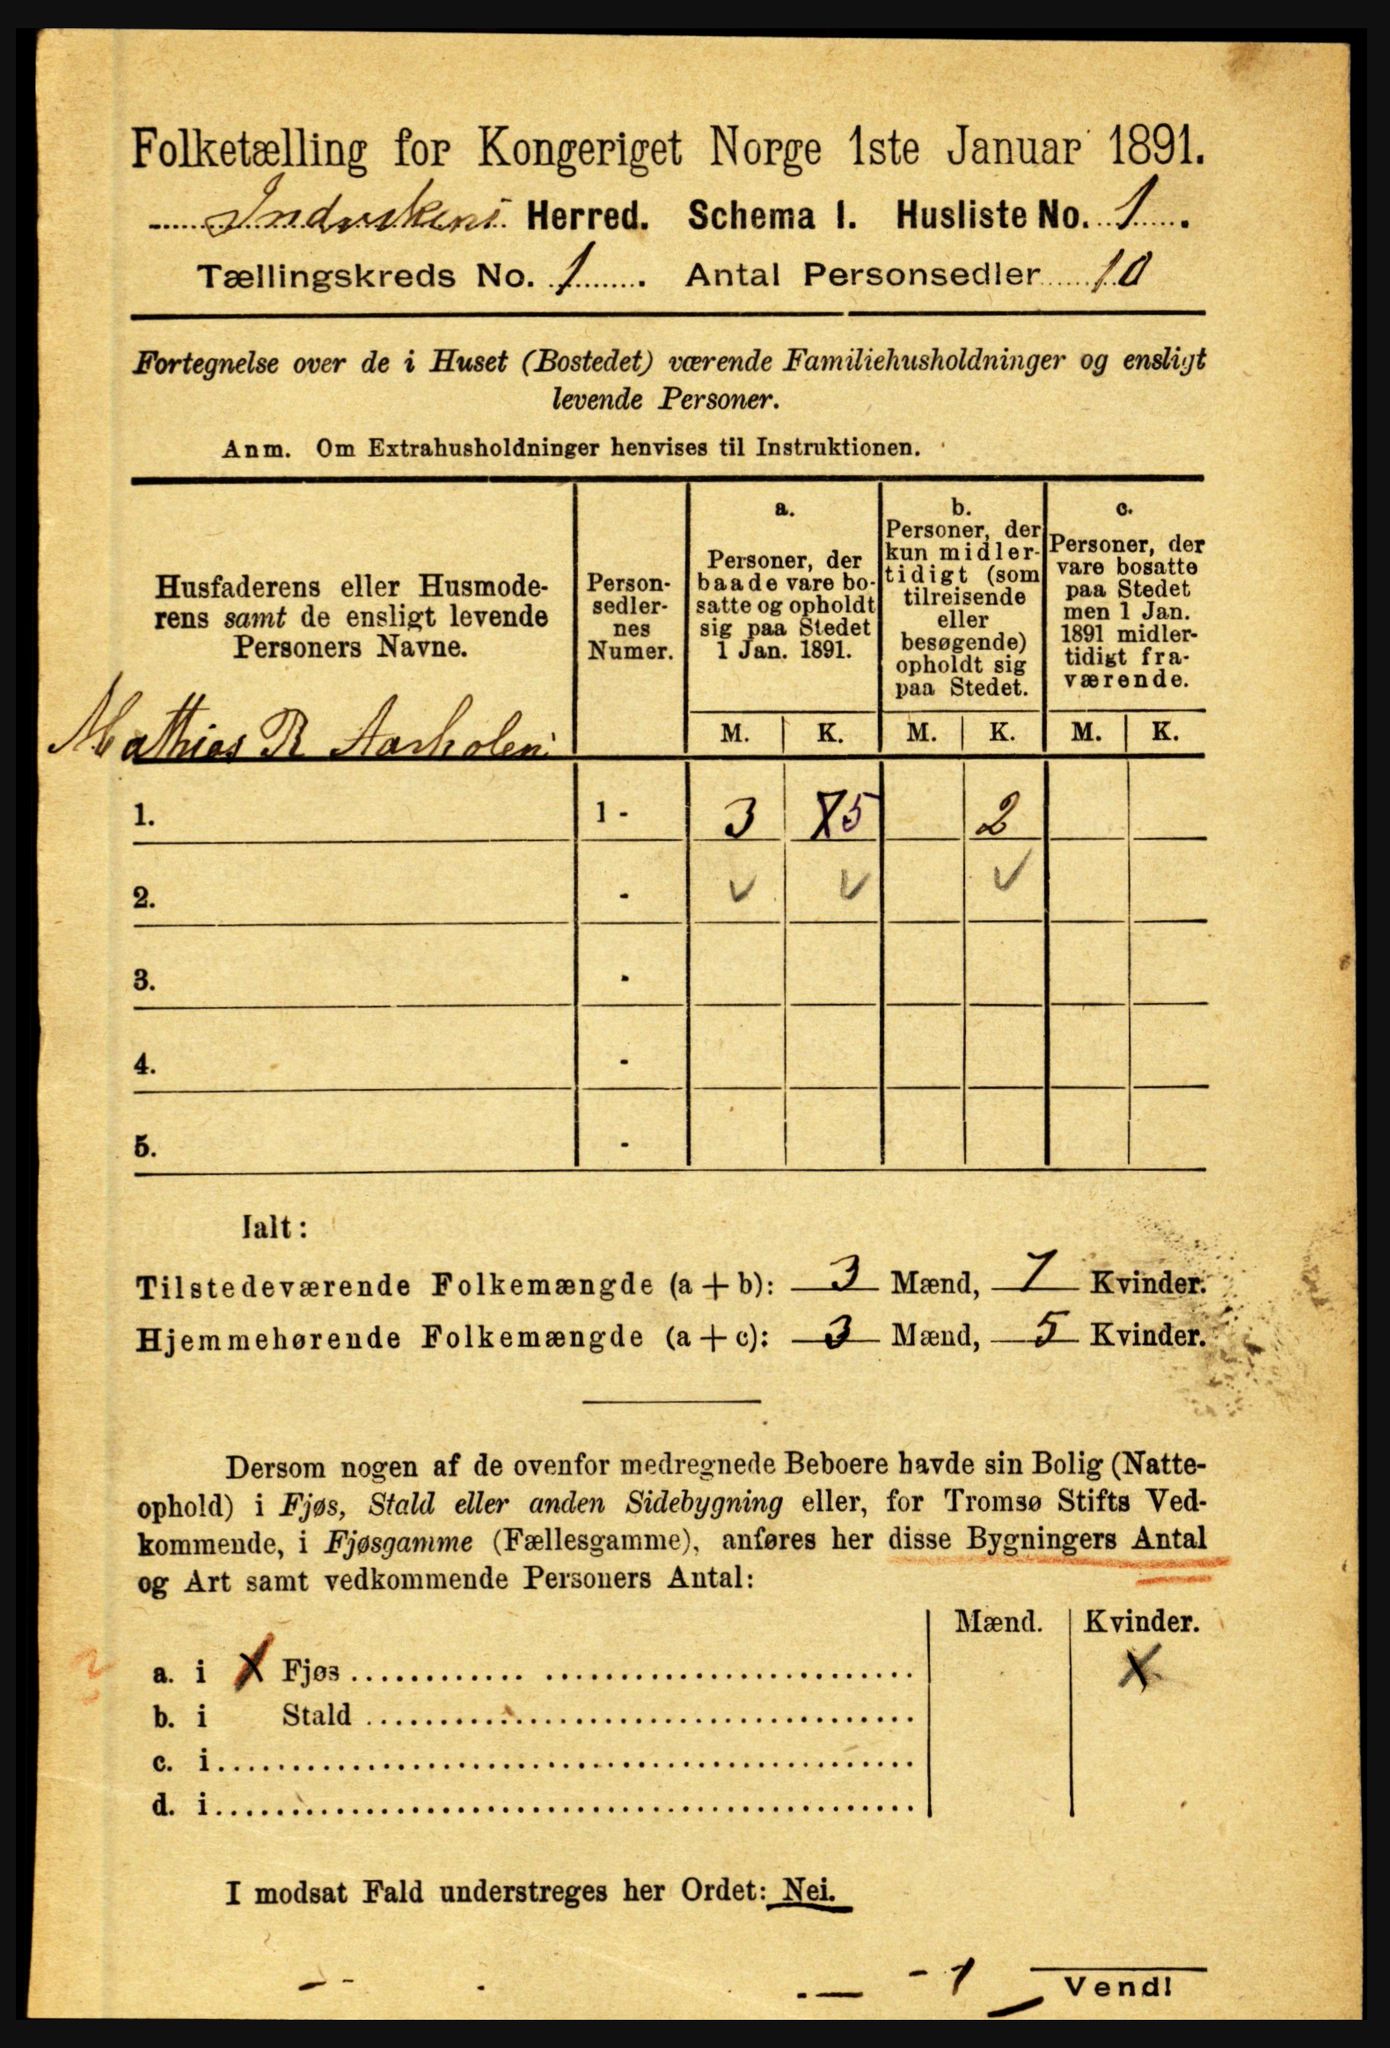 Folketælling for Kongeriget Norge 1ste Januar 1891.
Indvikens Herred. Schema I. Husliste No. 1.
Tællingskreds No. 1. Antal Personsedler 10
Fortegnelse over de i Huset (Bostedet) værende Familiehusholdninger og ensligt
levende Personer.
Anm. Om Extrahusholdninger henvises til Instruktionen.
Husfaderens eller Husmode-
rens samt de ensligt levende
Personers Navne.
Person-
sedler-
nes
Numer.
a.
Personer, der
baade vare bo-
satte og opholdt
sig paa Stedet
1 Jan. 1891.
b.
Personer, der
kun midler-
tidigt (som
tilreisende
eller
besøgende)
opholdt sig
paa Stedet.
c.
Personer, der
vare bosatte
paa Stedet
men 1 Jan.
1891 midler-
tidigt fra-
værende.
M. K. M. K. M. K.
Mathias R Aarholen
1. 1 - 3 5 2
2. - ✓ ✓ ✓
3. -
4. -
5. -
Ialt:
Tilstedeværende Folkemængde (a + b): 3 Mænd, 7 Kvinder.
Hjemmehørende Folkemængde (a + c): 3 Mænd, 5 Kvinder.
Dersom nogen af de ovenfor medregnede Beboere havde sin Bolig (Natte-
ophold) i Fjøs, Stald eller anden Sidebygning eller, for Tromsø Stifts Ved-
kommende, i Fjøsgamme (Fællesgamme), anføres her disse Bygningers Antal
og Art samt vedkommende Personers Antal:
Mænd. Kvinder.
a. i Fjøs
b. i Stald
c. i
d. i
I modsat Fald understreges her Ordet: Nei.
Vend!